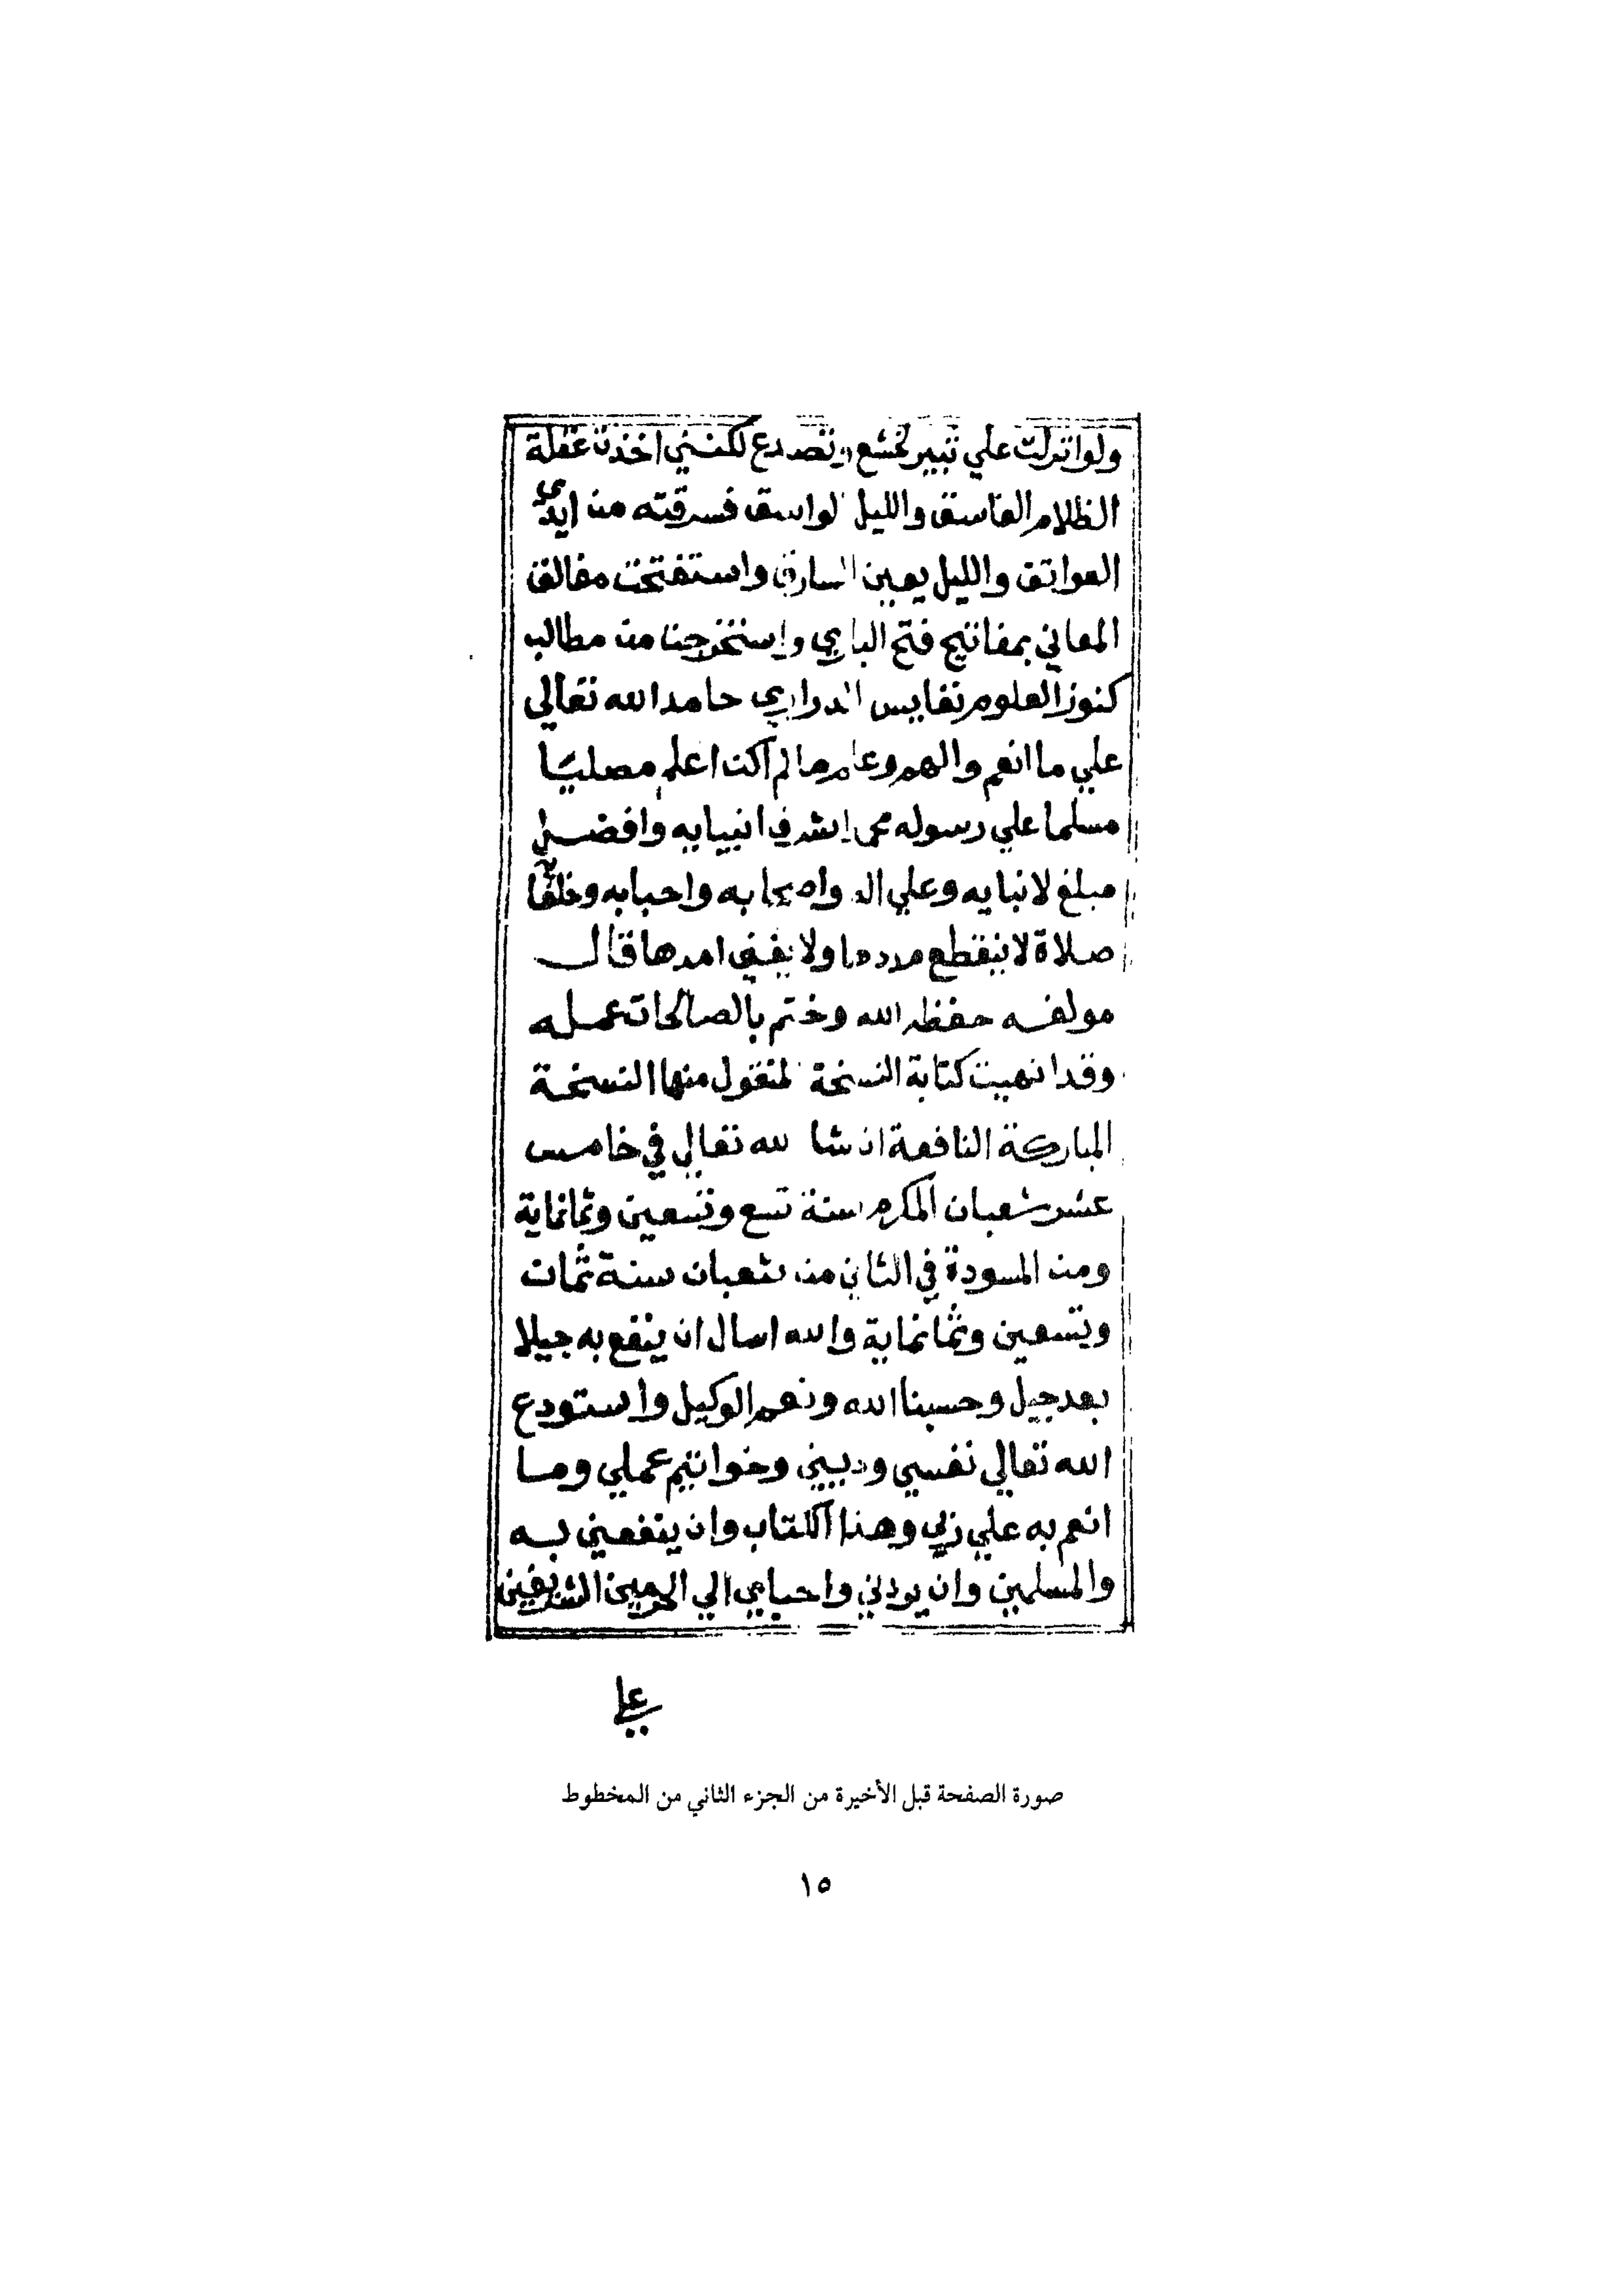 ولو انزلت علي ثبير لخشع او تصدع لكنني اخذت غفلة
الظلام الغاسق والليل الواسق فسرقته من ايدي
العوايق والليل يعين السارق واستفتحت مغالق
المعاني بمفاتيح فتح الباري واستخرجت من مطالب
كنوز العلوم نفايس الدراري حامدا لله تعالي
علي ما انعم والهم وعلم ما لم اكن اعلم مصليا
مسلما علي رسوله محمد اشرف انبيايه وافضل
مبلغ لانبايه وعلي اله واصحابه واحبابه وخلفا
صلاة لا ينقطع مددها ولا يفني امدها قال
مولفه حفظه الله وختم بالصالحات عمله
وقد انهيت كتابة النسخة المنقول منها النسخة
المباركة النافعة ان شا الله تعالي في خامس
عشر شعبان المكرم سنة تسع وتسعين وثمانماية
ومن المسودة في الثاني من شعبان سنة ثمان
وتسعين وثمانماية والله اسال ان ينفع به جيلا
بعد جيل وحسبنا الله ونعم الوكيل واستودع
الله تعالي نفسي وديني وخواتيم عملي وما
انعم به علي ربي وهذا الكتاب وان ينفعني به
والمسلمين وان يردني واحبابي الي الحرمين الشريفين
علي
صورة الصفحة قبل الأخيرة من الجزء الثاني من المخطوط
١٥